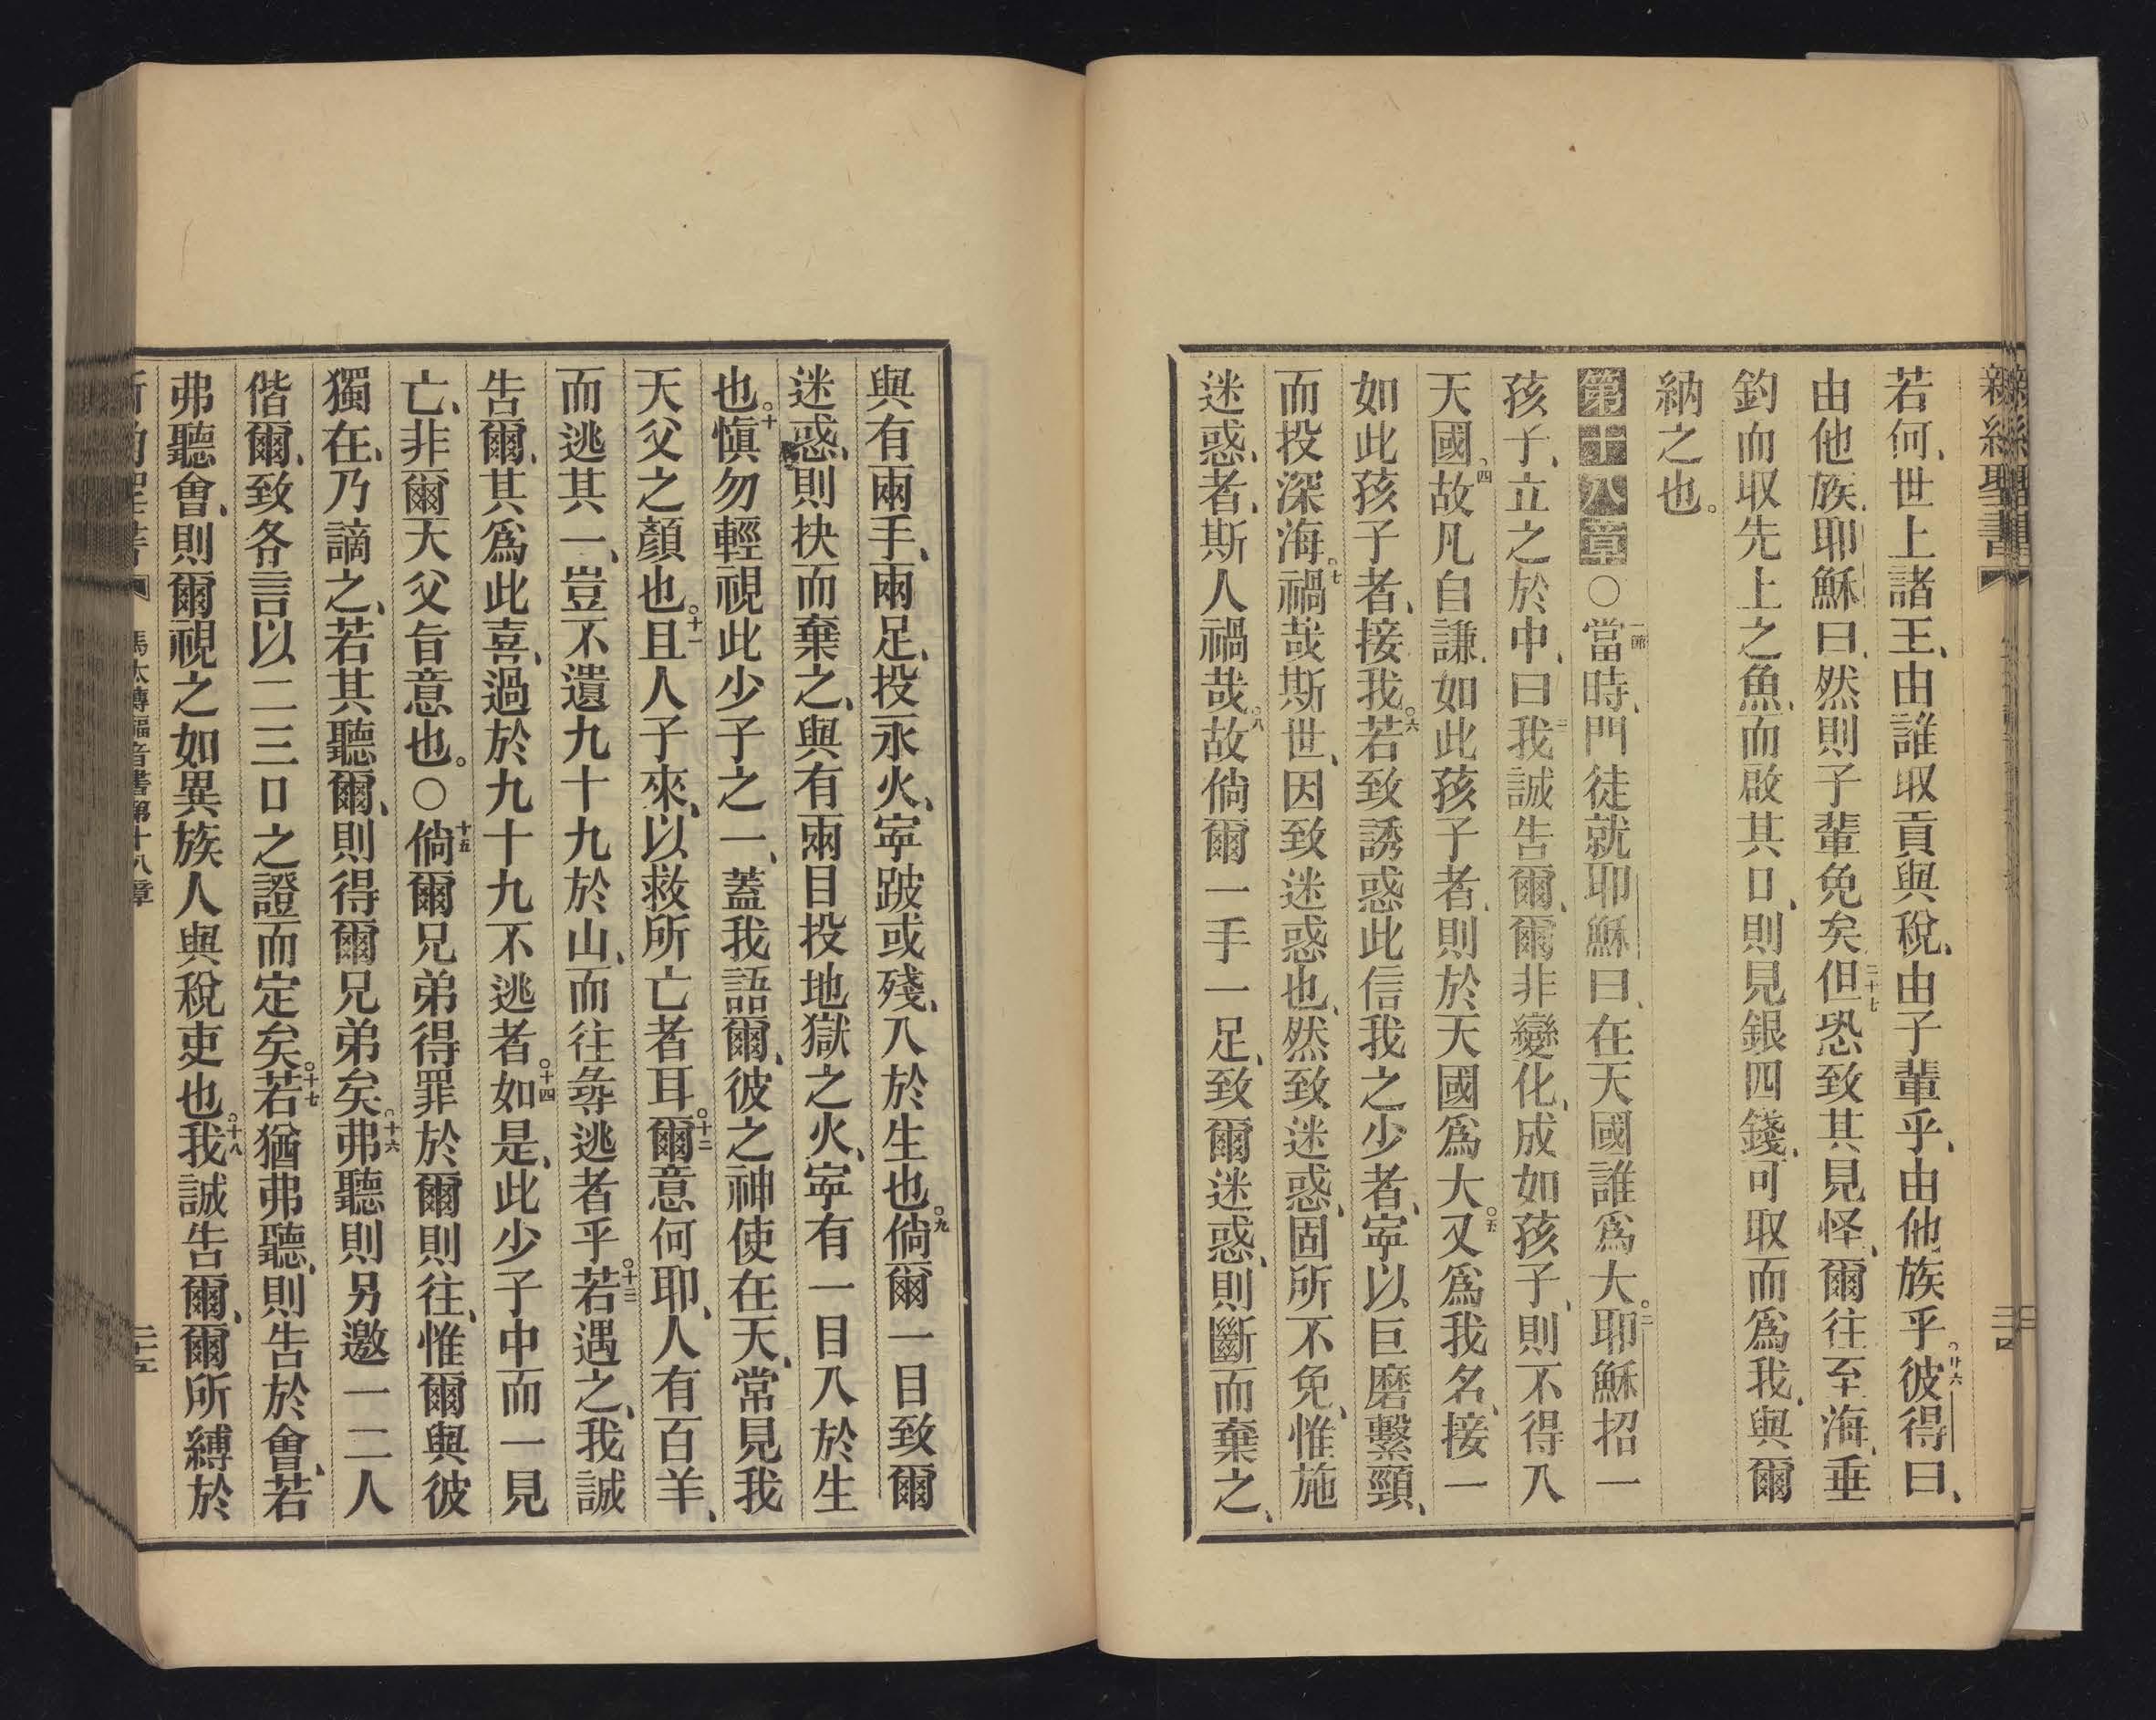 若何、世上諸王、由誰取貢與稅、由子輩乎、由他族乎。廿六彼得曰、
由他族、耶穌曰、然則子輩免矣、二十七但恐致其見怪、爾往至海、垂
釣而取先上之魚、而啟其口、則見銀四錢、可取而爲我、與爾
納之也。
第十八章○一節當時、門徒就耶穌曰、在天國誰爲大。二耶穌招一
孩子、立之於中、三曰我誠告爾、爾非變化、成如孩子、則不得入
天國、四故凡自謙、如此孩子者、則於天國爲大。五又爲我名、接一
如此孩子者、接我。六若致誘惑此信我之少者、寧以巨磨繫頸、
而投深海。七禍哉斯世、因致迷惑也、然致迷惑、固所不免、惟施
迷惑、者、斯人禍哉。八故倘爾一手一足、致爾迷惑、則斷而棄之、
與有兩手、兩足、投永火、寧跛或殘、入於生也。九倘爾一目致爾
迷惑、則抉而棄之、與有兩目投地獄之火、寧有一目入於生
也。十愼勿輕視此少子之一、蓋我語爾、彼之神使在天、常見我
天父之顏也。十一且人子來、以救所亡者耳。十二爾意何耶、人有百羊、
而逃其一、豈不遺九十九於山、而往尋逃者乎。十三若遇之、我誠
告爾、其爲此喜、過於九十九不逃者。十四如是、此少子中而一見
亡、非爾天父旨意也。○十五倘爾兄弟得罪於爾則往、惟爾與彼
獨在、乃謫之、若其聽爾、則得爾兄弟矣。十六弗聽則另邀一二人
偕爾、致各言以二三口之證而定矣。十七若猶弗聽、則告於會、若
弗聽會、則爾視之如異族人與稅吏也。十八我誠告爾、爾所縛於
馬太傳福音書第十八章
二十五